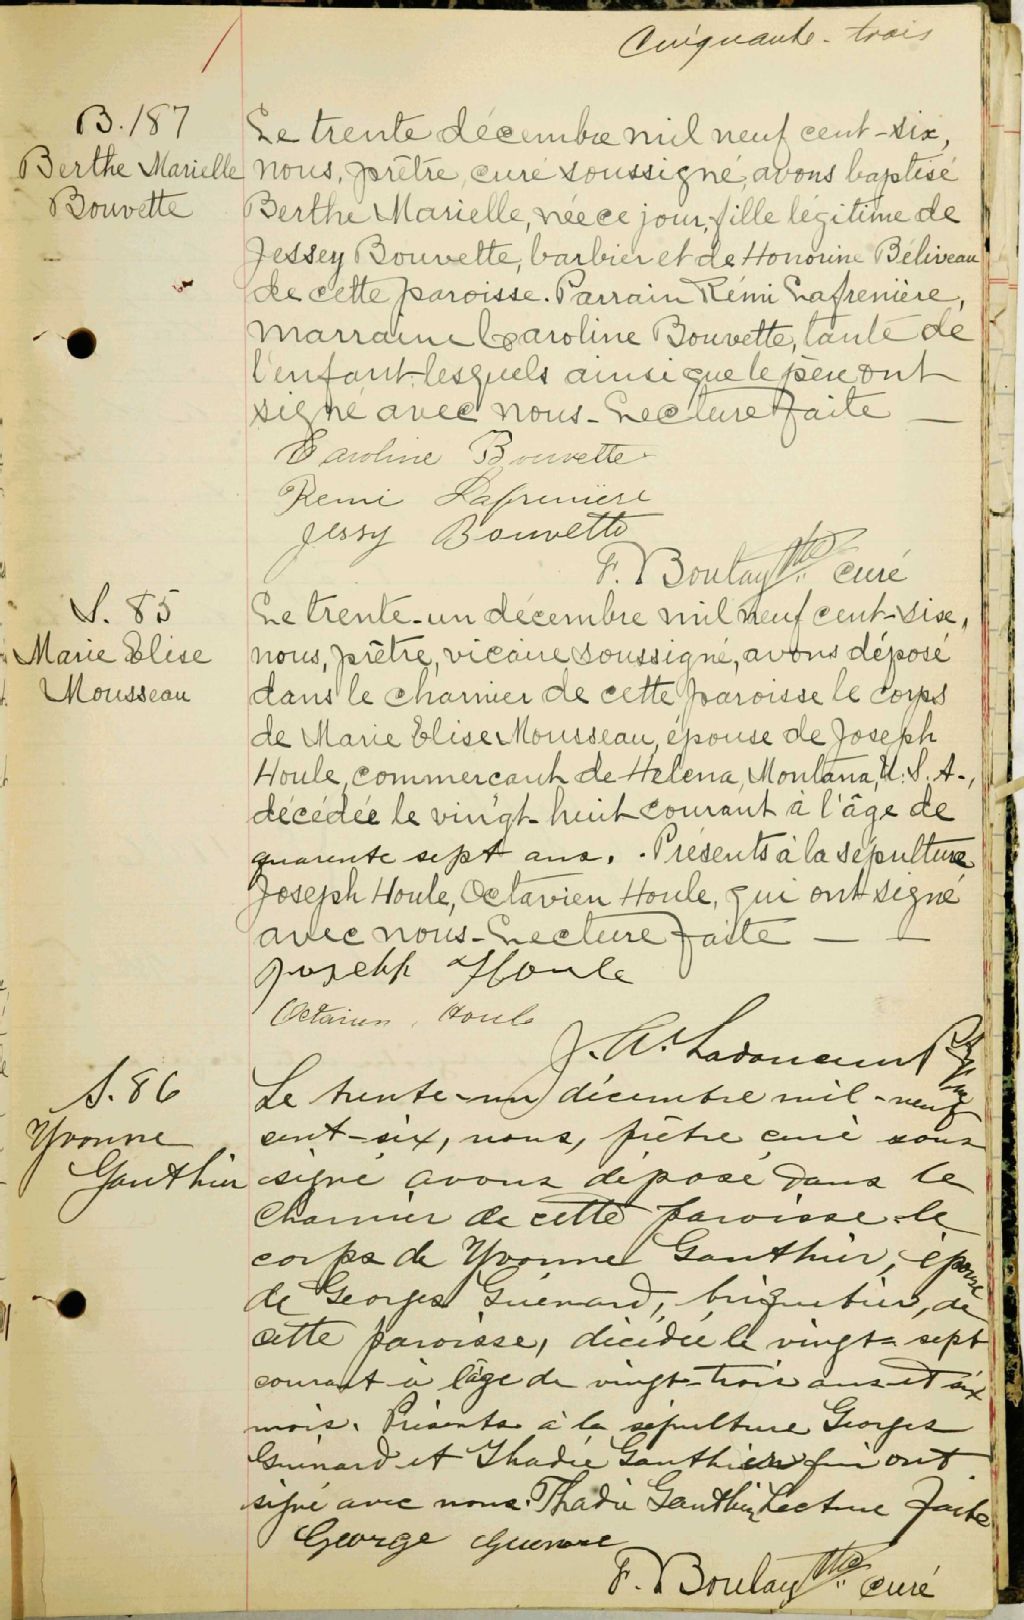 Cinquante-trois
B. 187
Berthe Marielle
Bouvette
Le trente décembre mil neuf cent-six,
nous, prêtre, curé soussigné, avons baptisé
Berthe Marielle, née ce jour, fille légitime de
Jessey Bouvette, barbier et de Honorine Béliveau
de cette paroisse. Parrain Rémi Lafrenière,
marraine Caroline Bouvette, tante de
l'enfant lesquels ainsi que le père ont
signé avec nous - Lecture faite —
Caroline Bouvette
Remi Lafreniere
Jessy Bouvette
F. Boulay ptre curé
S. 85
Marie Elise
Mousseau
Le trente-un décembre mil neuf cent-six,
nous, prêtre, vicaire soussigné, avons déposé
dans le charnier de cette paroisse le corps
de Marie Elise Mousseau, épouse de Joseph
Houle, commercant de Helena, Montana, U. S. A.,
décédée le vingt-huit courant à l'âge de
quarente sept ans. Présents à la sépulture
Joseph Houle, Octavien Houle, qui ont signé
avec nous - Lecture faite — —
Joseph Houle
Octavien Houle
J. A. Ladouceur Ptre
S. 86
Yvonne
Gauthier
Le trente-un décembre mil-neuf
cent-six, nous, prêtre curé sous
signé avons déposé dans le
charnier de cette paroisse le
corps de Yvonne Gauthier, épouse
de Georges Guénard, briquetier, de
cette paroisse, décédée le vingt-sept
courant à l'âge de vingt-trois ans et six
mois. Présents à la sépulture Georges
Guénard et Thadée Gauthier qui ont
signé avec nous. Thadé Gauthier Lecture faite
George Guenare
F. Boulay ptre curé